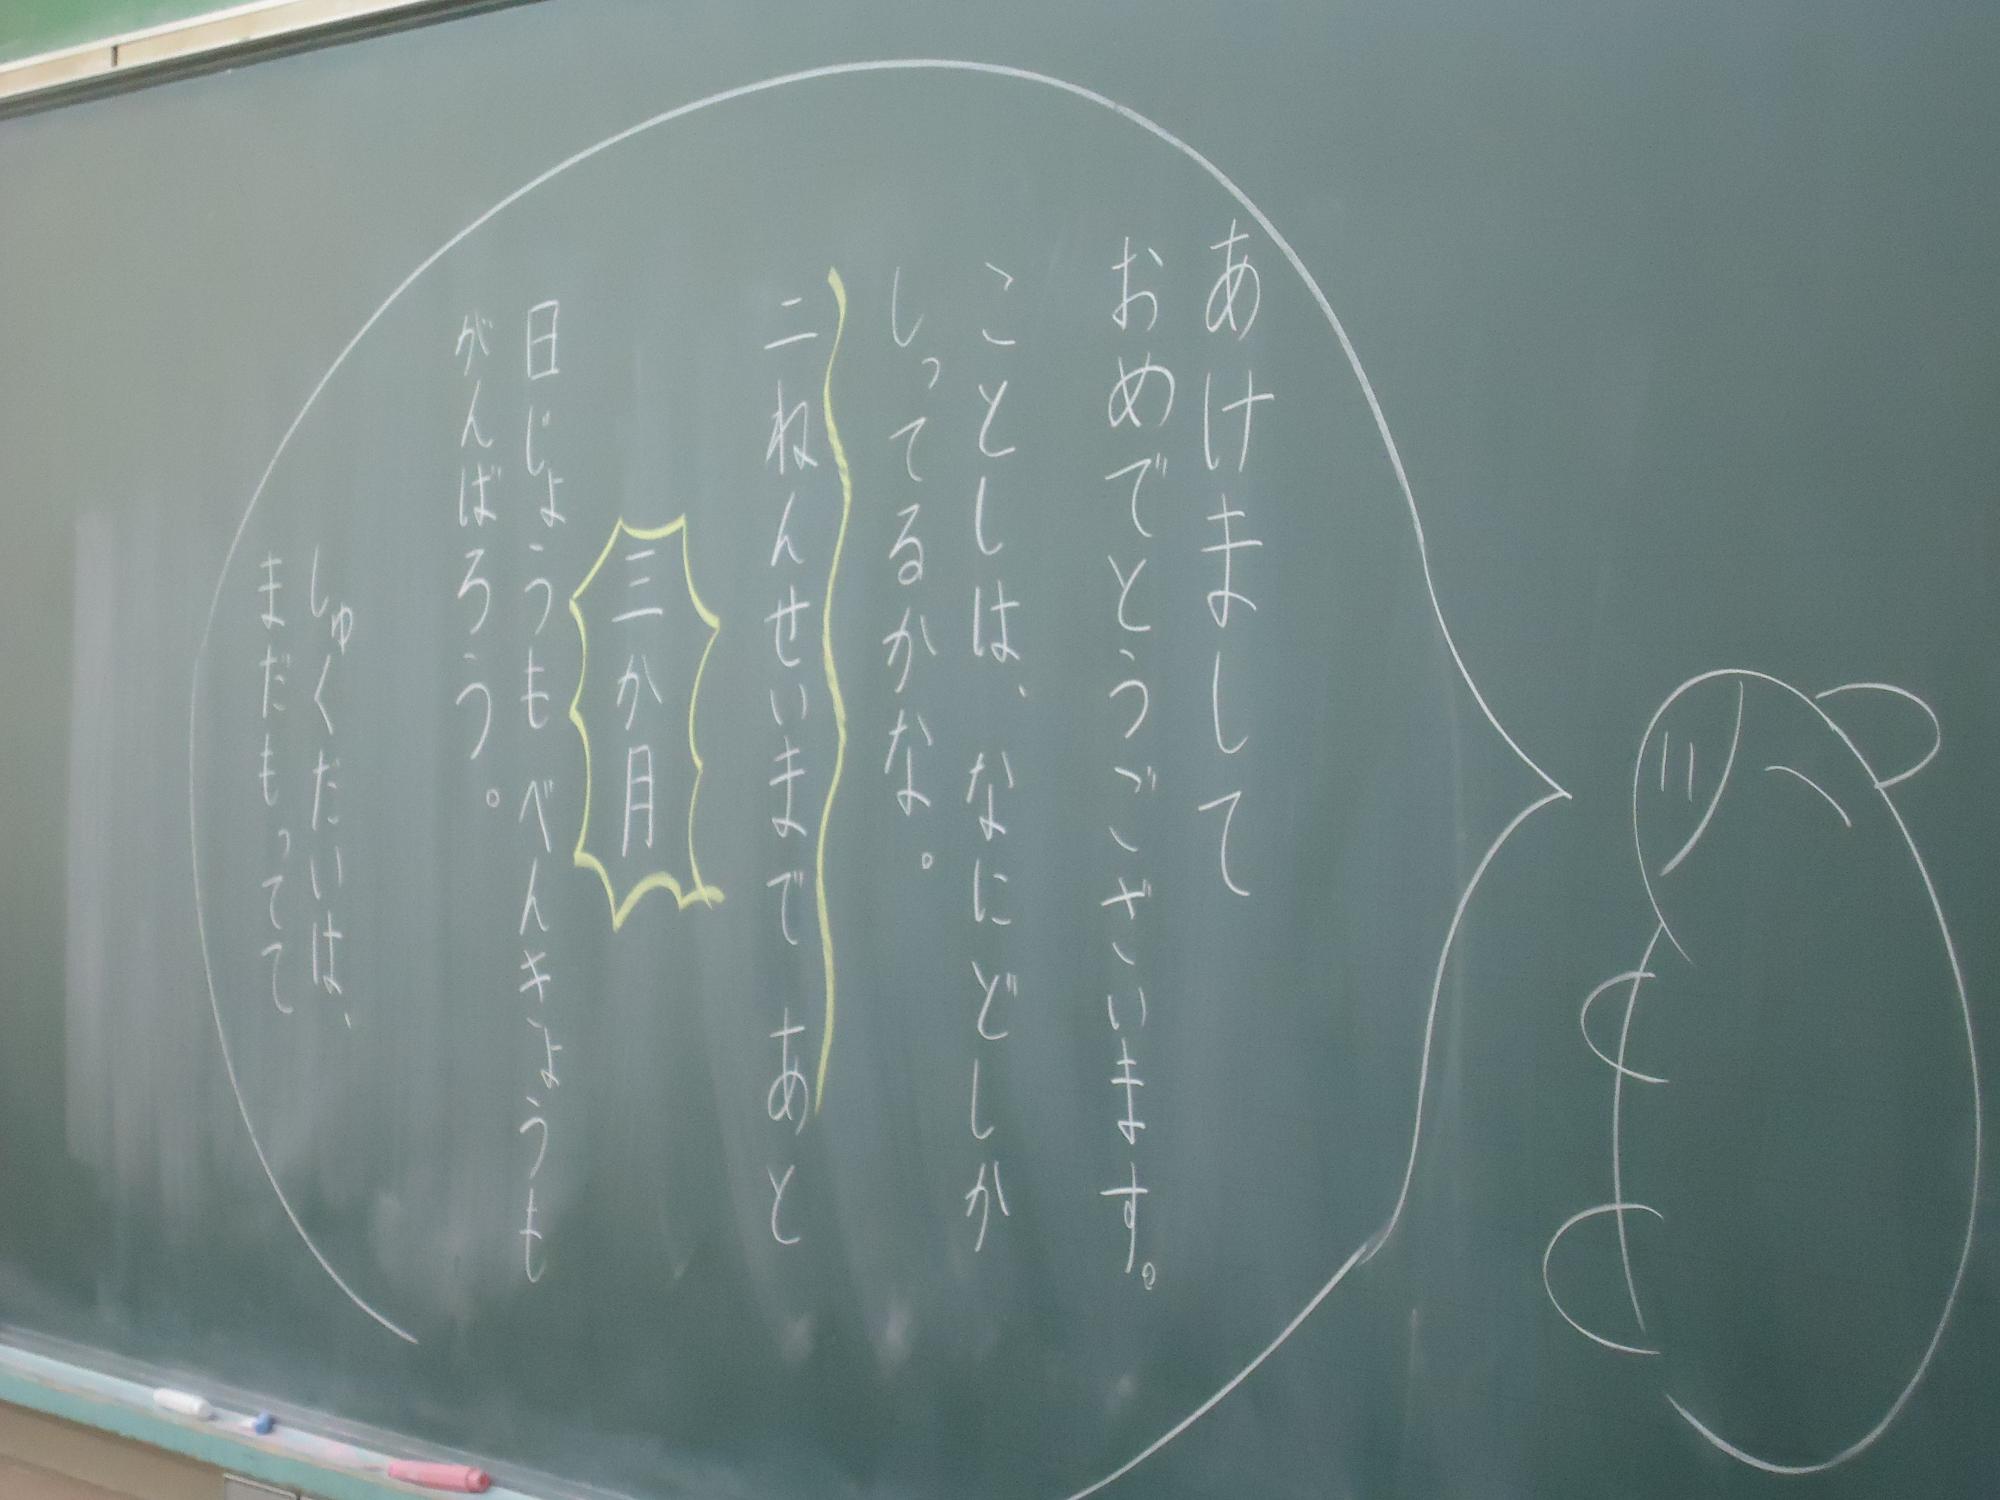 あけまして
おめでとうございます。
ことしは、なにどしか
しってるかな。
二ねんせいまで あと
三か月
日じょうも べんきょうも
がんばろう。
しゅくだいは、
まだもってて